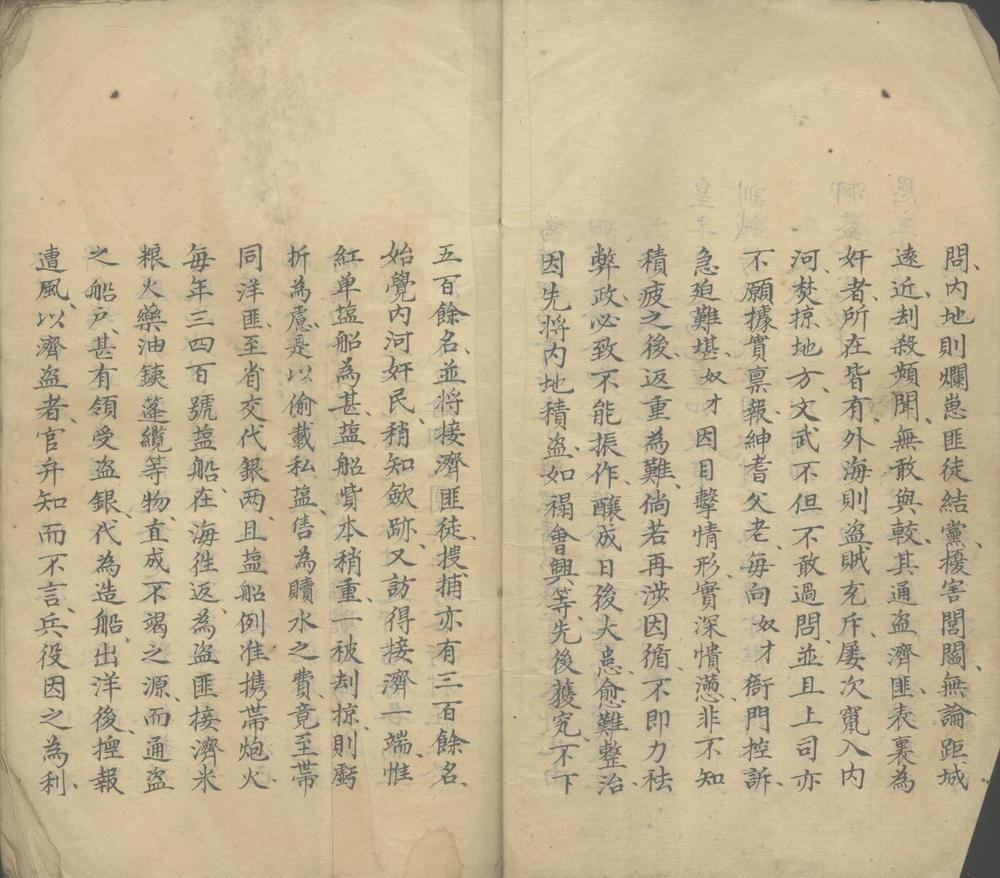 問、內地則爛崽匪徒結黨、擾害閭閻、無論距城
遠近、刦殺頻聞、無敢與較、其通盜濟匪、表裏為
奸者、所在皆有、外海則盜賊充斥、屢次竄入內
河、焚掠地方、文武不但不敢過問、並且上司亦
不願據實禀報、紳耆父老、每向奴才衙門控訴、
急廹難堪、奴才因目擊情形、實深憤懣、非不知
積疲之後、返重為難、倘若再涉因循、不即力袪
弊政、必致不能振作、釀成日後大患、愈難整治、
因先將內地積盜、如禢會興等、先後獲究、不下
五百餘名、並將接濟匪徒、搜捕亦有三百餘名、
始覺內河奸民、稍知歛跡、又訪得接濟一端、惟
紅单塩船為甚、塩船貲本稍重、一被刦掠、則虧
折為慮、是以偷載私塩、售為贖水之費、竟至帶
同洋匪、至省交代銀两、且塩船例准携帶炮火、
每年三四百號塩船、在海徃返、為盜匪接濟米
粮火藥油鉄蓬纜等物、直成不竭之源、而通盜
之船戶、甚有領受盜銀、代為造船、出洋後、揑報
遭風、以濟盜者、官弁知而不言、兵役因之為利、